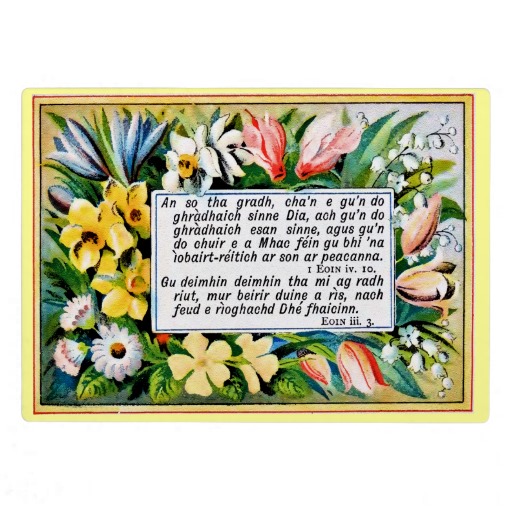 An so tha gradh, cha'n e gu'n do
ghràdhaich sinne Dia, ach gu'n do
ghràdhaich esan sinne, agus gu'n
do chuir e a Mhac féin gu bhi 'na
ìobairt-réitich ar son ar peacanna.
1 Eoin iv. 10.
Gu deimhin deimhin tha mi ag radh
riut, mur beirir duine a rìs, nach
feud e rìoghachd Dhé fhaicinn.
Eoin iii. 3.